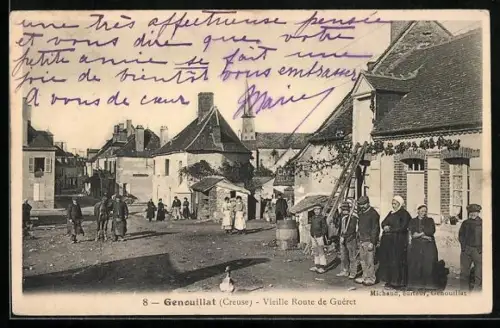 une très affectueuse pensée
et vous dire que votre
petite amie se fait une
joie de bientôt vous embrasser
A vous de cœur Marie
8 — Genouillat (Creuse) - Vieille Route de Guéret
Michaud, éditeur, Genouillat